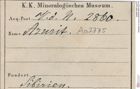 K. K. Mineralogisches Museum.
Acq.-Post V. d. N. 2860
Name Azurit. An2775
Fundort
Sibirien.